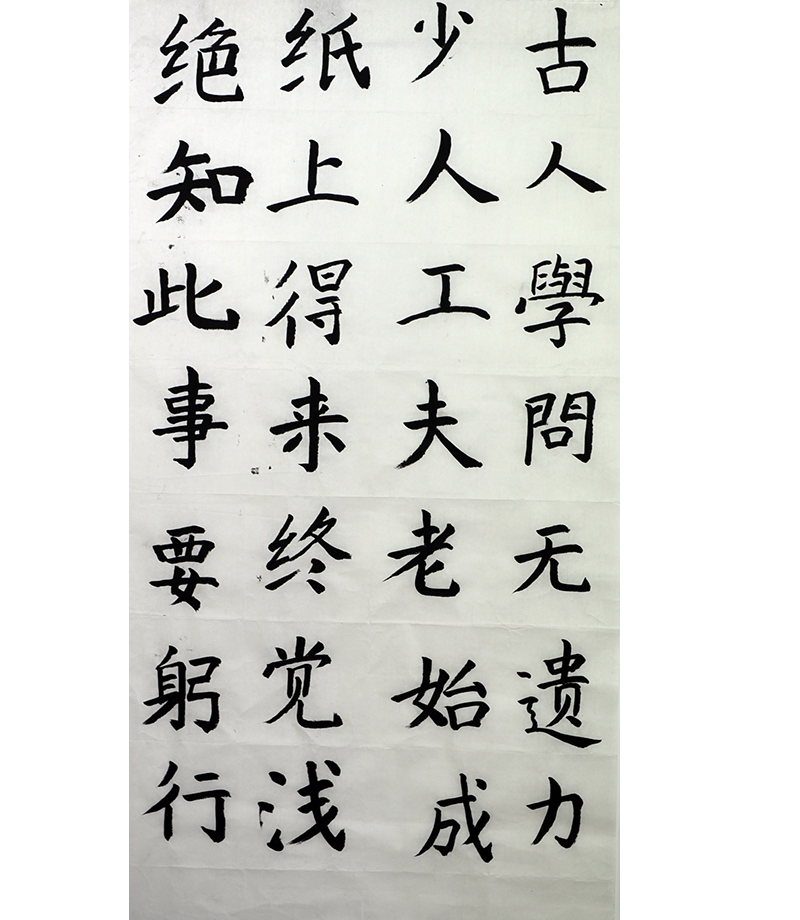 古人學問无遗力
少人工夫老始成
纸上得来终觉浅
绝知此事要躬行